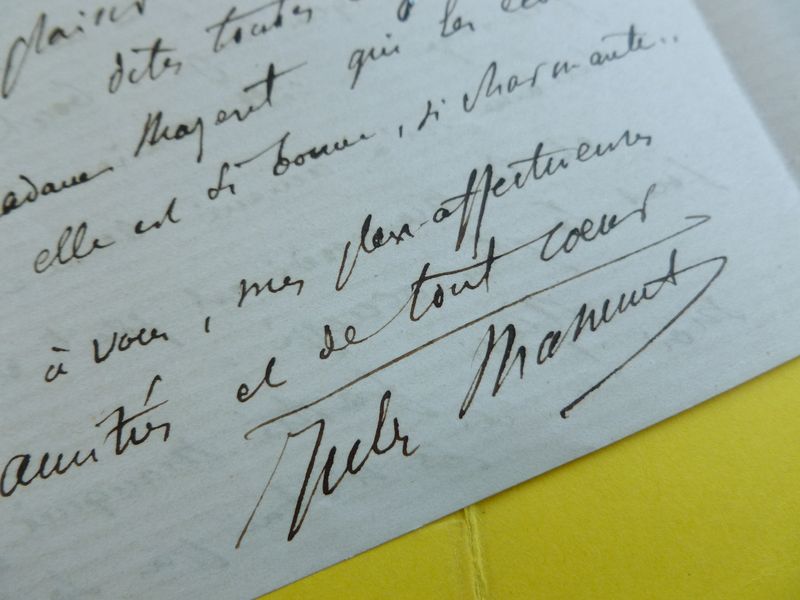 plaisir
dites toutes
madame Mazeret qui les
elle est si bonne, si charmante..
à vous, mes plus affectueuses
amitiés et de tout cœur
Jules Massenet